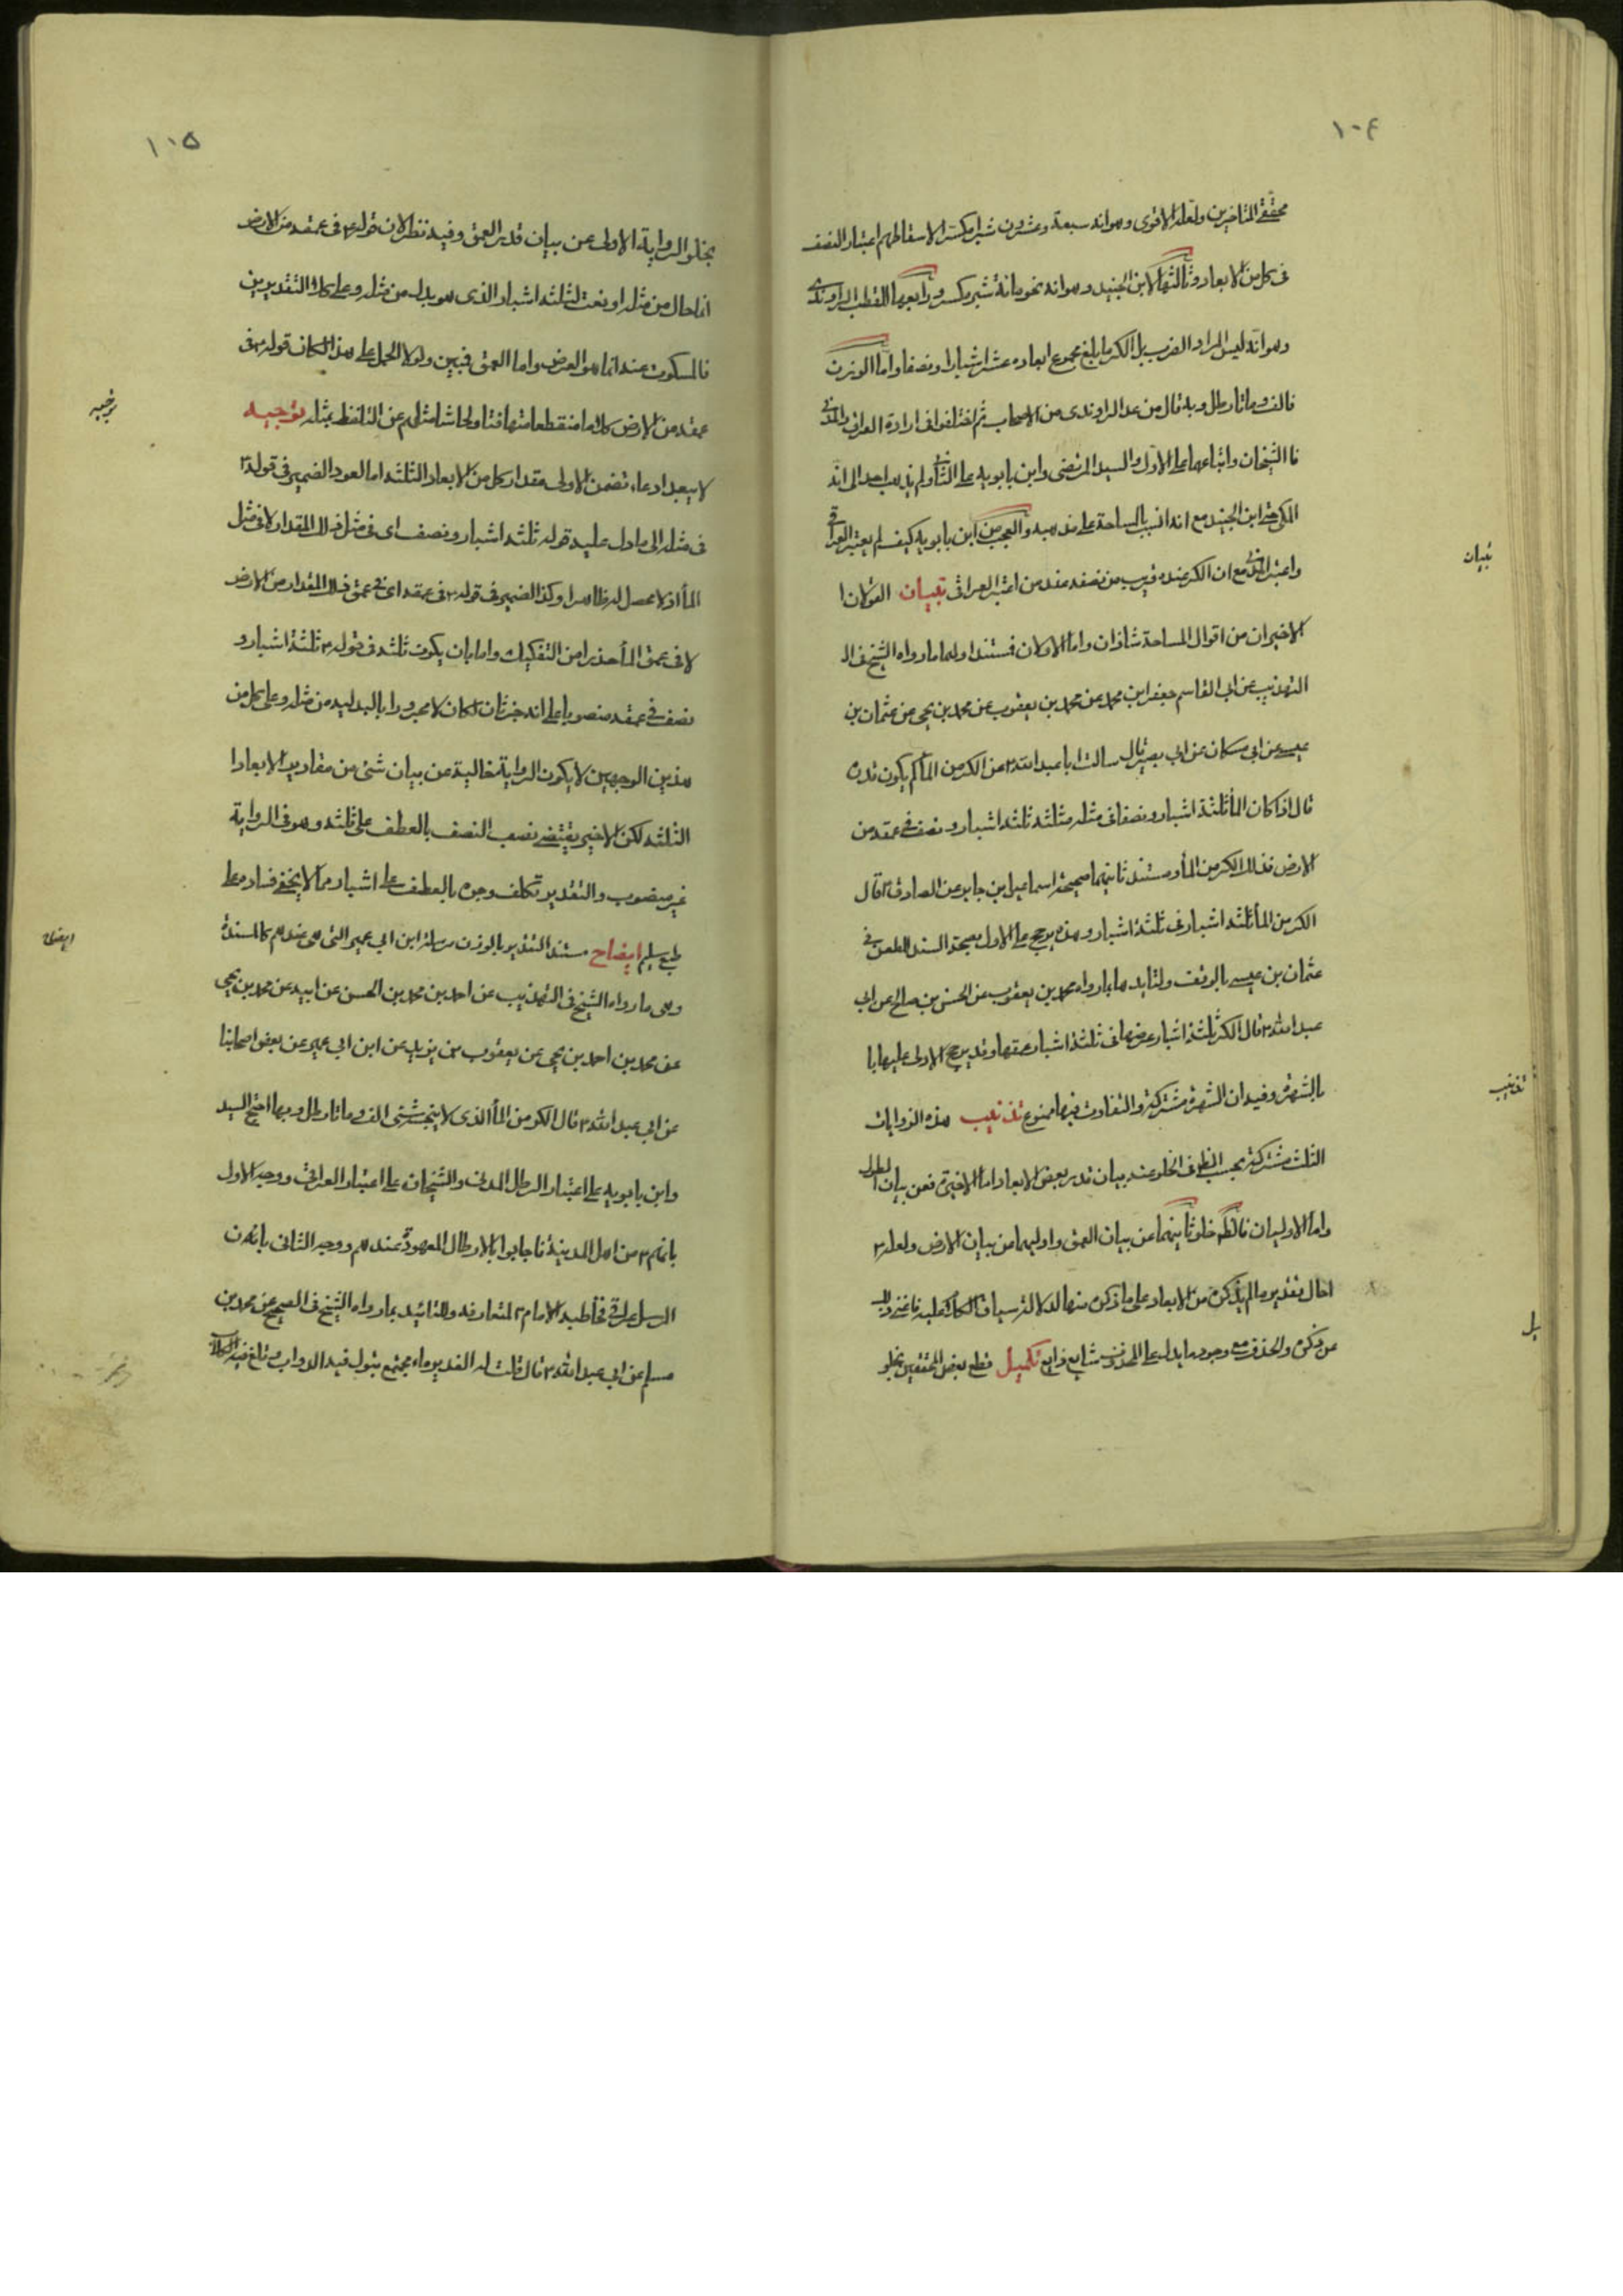 ١٠٤
محققي المتاخرين ولعله الاقوى وهو انه سبعة وعشرون شبرا مكسرا لاسقاطهم اعتبار النصف
في كل من الابعاد وثالثها لابن الجنيد وهو انه نحو مائة شبر مكسر ورابعها للقطب الراوندي
وهو انه ليس المراد الضرب بل الكر ما بلغ مجموع ابعاده عشرة اشبار ونصفا واما الوزن
فالف ومائتا رطل وبه قال من عدا الراوندي من الاصحاب ثم اختلفوا في ارادة العراقي والمدني
فالشيخان واتباعهما على الاول والسيد المرتضى وابن بابويه على الثاني ولم يذهب احد الى انه
المكي حتى ابن الجنيد مع انه انسب بالمساحة على مذهبه والعجب من ابن بابويه كيف لم يعتبر العراقي
واعتبر المدني مع ان الكر عنده قريب من نصفه عند من اعتبر العراقي تبيان القولان ا
تبيان
الاخيران من اقوال المساحة شاذان واما الاولان فمستند اولهما ما رواه الشيخ في ال
التهذيب عن ابي القاسم جعفر ابن محمد عن محمد بن يعقوب عن محمد بن يحيى عن عثمان بن
عيسى عن ابي مسكان عن ابي بصير قال سالت ابا عبد الله ع عن الكر من الماء كم يكون قدره
قال اذا كان الماء ثلثة اشبار ونصفا في مثله ثلثة اشبار ونصف في عمقه من
الارض فذلك الكر من الماء ومستند ثانيهما صحيحة اسماعيل ابن جابر عن الصادق ع قال
الكر من الماء ثلثة اشبار في ثلثة اشبار وهذه يرجح على الاول بصحة السند للطعن في
عثمان بن عيسى بالوقف ولتايدها بما رواه محمد بن يعقوب عن الحسن بن صالح عن ابي
عبد الله ع قال الكر ثلثة اشبار عرضها في ثلثة اشبار عمقها وقد يرجح الاولى عليها با
بالشهرة وفيه ان الشهرة مشتركة والتفاوت فيها ممنوع تذنيب هذه الروايات
تذنيب
الثلث مشتركة بحسب الظ في الخلو عن بيان قدر بعض الابعاد اما الاخيرة فعن بيان الطول
واما الاوليان فالظ خلو ثانيهما عن بيان العمق واوليهما من بيان الارض ولعله ع
احال تقدير ما لم يذكره من الابعاد على ما ذكره منها لدلالة سياق الكلام عليه فاغنى ذلك
عن ذكره والحذف مع وجود ما يدل على المحذوف شايع ذايع تكميل قطع بعض المحققين بخلو
يل
١٠٥
بخلو الرواية الاولى عن بيان قدر العمق وفيه نظر لان قوله ع في عمقه من الارض
اما حال من مثله او نعت لثلثة اشبار الذي هو بدل من مثله وعلى كلا التقديرين
فالمسكوت عنه انما هو العرض واما العمق فمبين ولولا الحمل على هذا لكان قوله ع في
عمقه من الارض كلاما منقطعا متهافتا ولحاشا مثله عن التلفظ بمثله توجيه
توجيه
لا يبعد ادعاء تضمن الاولى مقدار كل من الابعاد الثلثة اما لعود الضمير في قوله ع
في مثله الى ما دل عليه قوله ثلثة اشبار ونصف اي في مثل ذلك المقدار لا في مثل
الماء اذ لا محصل له ظاهرا وكذا الضمير في قوله ع في عمقه اي في عمق ذلك المقدار من الارض
لا في عمق الماء حذرا من التفكيك واما بان يكون ثلثة في قوله ع ثلثة اشبار و
نصف في عمقه منصوبا على انه خبر ثان لكان لا مجرورا بالبدلية من مثله وعلى كل من
هذين الوجهين لا يكون الرواية خالية عن بيان شئ من مقادير الابعاد ا
الثلثة لكن الاخير يقتضي نصب النصف بالعطف على ثلثة وهو في الرواية
غير منصوب والتقدير تكلف وجره بالعطف على اشبار مما لا يخفى فساده على
طبع سليم ايضاح مستند التقدير بالوزن مرسلة ابن ابي عمير التي هي عندهم كالمسندة
ايضاح
وهي ما رواه الشيخ في التهذيب عن احمد بن محمد بن الحسن عن ابيه عن محمد بن يحيى
عن محمد بن احمد بن يحيى عن يعقوب بن يزيد عن ابن ابي عمير عن بعض اصحابنا
عن ابي عبد الله ع قال الكر من الماء الذي لا ينجسه شئ الف ومائتا رطل وبها احتج السيد
وابن بابويه على اعتبار الرطل المدني والشيخان على اعتبار العراقي ووجه الاول
بانهم ع من اهل المدينة فاجابوا بالارطال المعهودة عندهم ووجه الثاني بان
المرسل عراقي فخاطبه الامام ع بالمتعارفة وللتائيد بما رواه الشيخ في الصحيح عن محمد بن
مسلم عن ابي عبد الله ع قال قلت له الغدير ماء مجتمع يبول فيه الدواب وتلغ فيه الكلاب